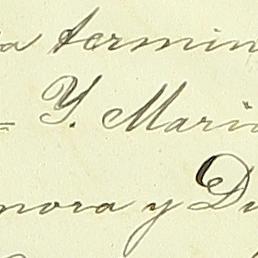 a termin
Y. Mario
nora y Du